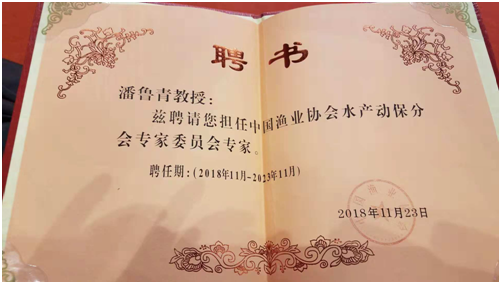 聘书
潘鲁青教授：
兹聘请您担任中国渔业协会水产动保分
会专家委员会专家。
聘任期：(2018年11月-2023年11月)
2018年11月23日